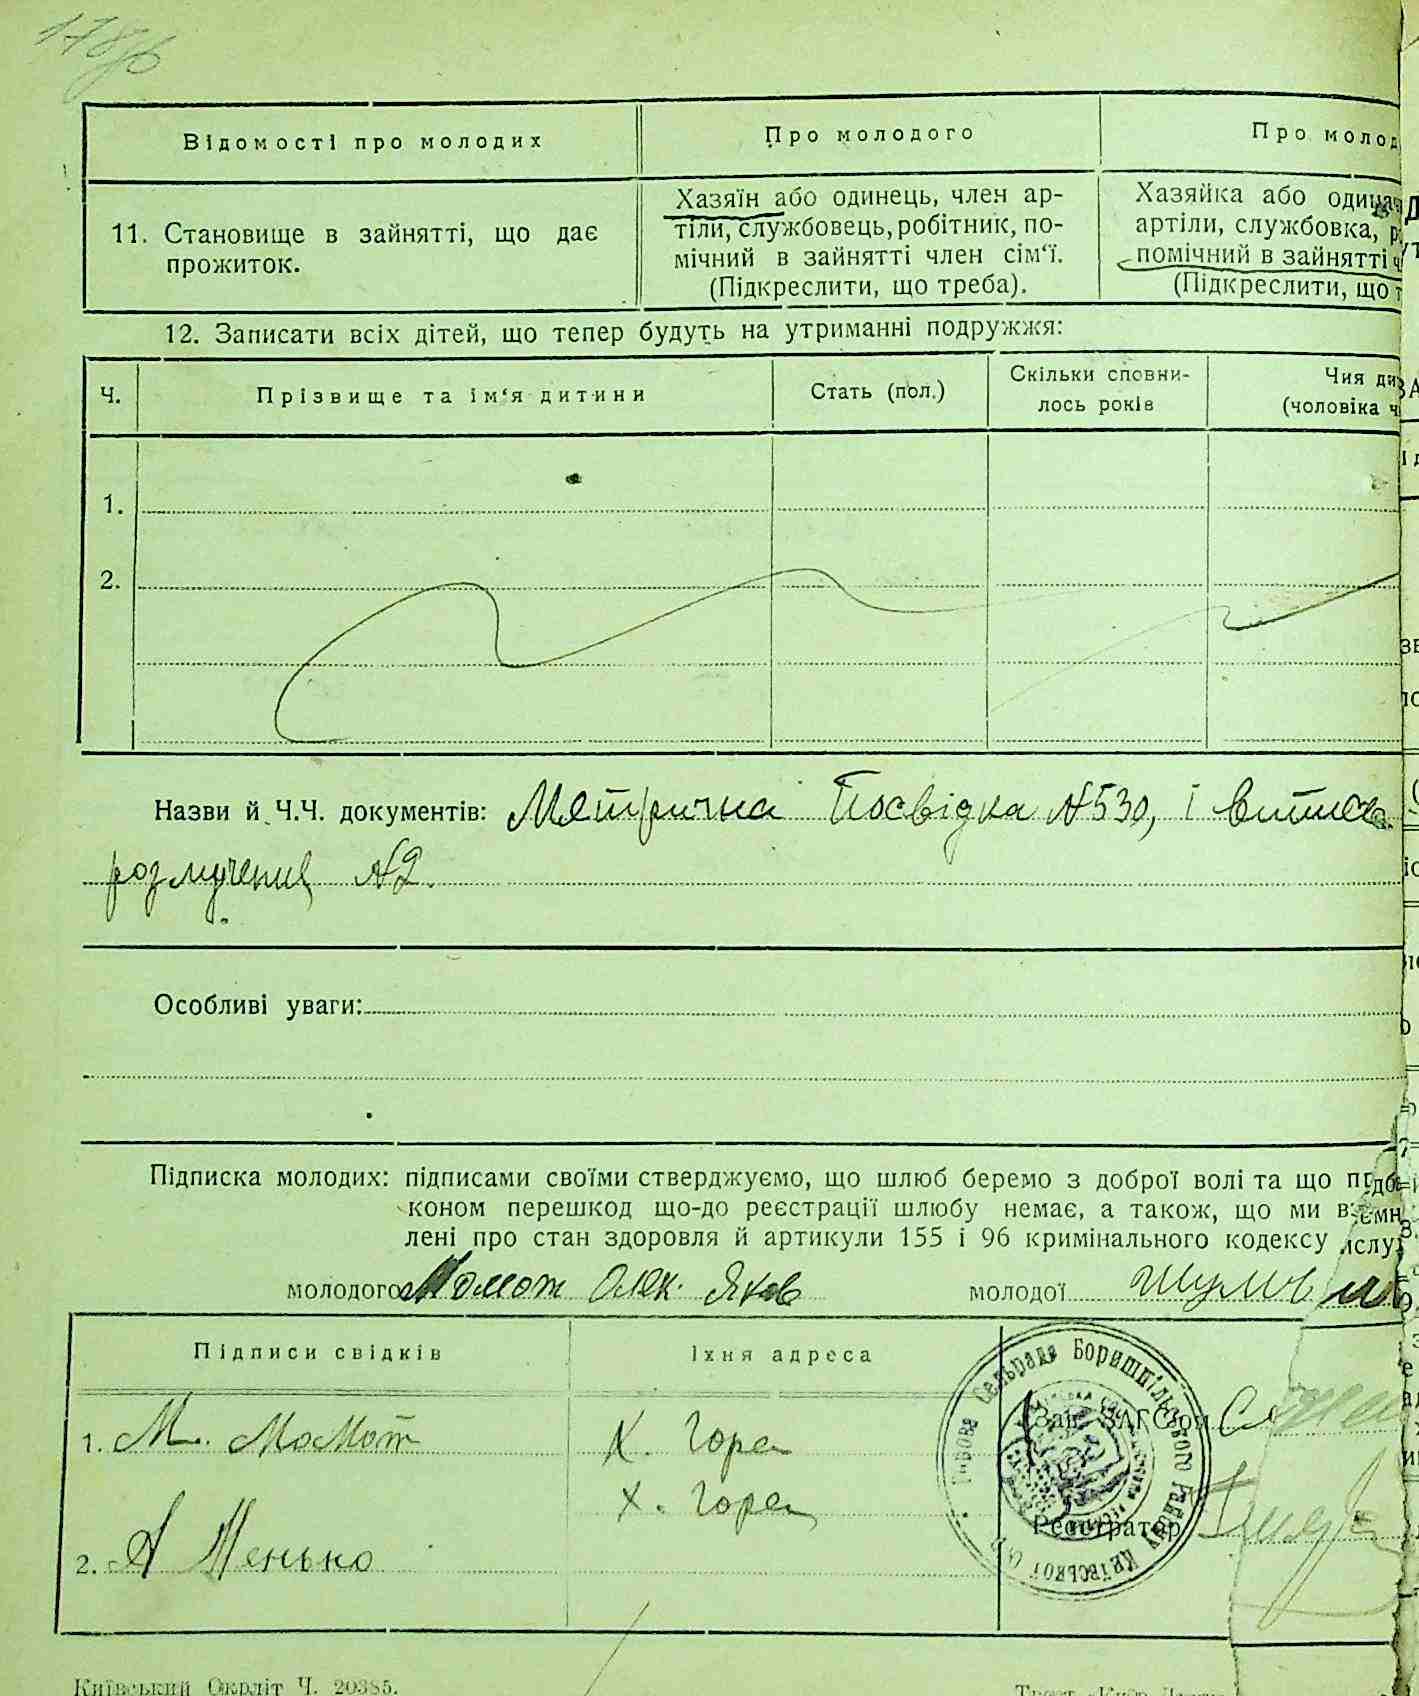 178зв
Відомості про молодих
Про молодого
Про молод
11. Становище в зайнятті, що дає
прожиток.
Хазяїн або одинець, член ар-
тіли, службовець, робітник, по-
мічний в зайнятті член сім'ї.
(Підкреслити, що треба).
Хазяйка або
артіли, службовка,
помічний в зайнятті
(Підкреслити, що
12. Записати всіх дітей, що тепер будуть на утриманні подружжя:
Ч.
Прізвище та ім'я дитини
Стать (пол.)
Скільки сповни-
лось років
Чия ди
(чоловіка
1.
2.
Назви й Ч.Ч. документів: Метрична Посвідка №530, і
№2.
Особливі уваги:
Підписка молодих: підписами своїми стверджуємо, що шлюб беремо з доброї волі та що
коном перешкод що-до реєстрації шлюбу немає, а також, що ми
лені про стан здоровля й артикули 155 і 96 кримінального кодексу
молодого Момот Олек. Яков молодої
Підписи свідків
Їхня адреса
1. М. Момот
Х. Гора
Х. Гора
2. А Менько
Сельрада Боришпільського Району Київської
Зав. ЗАГС'ом
Реєстратор
Київський Окрліт Ч. 20385.